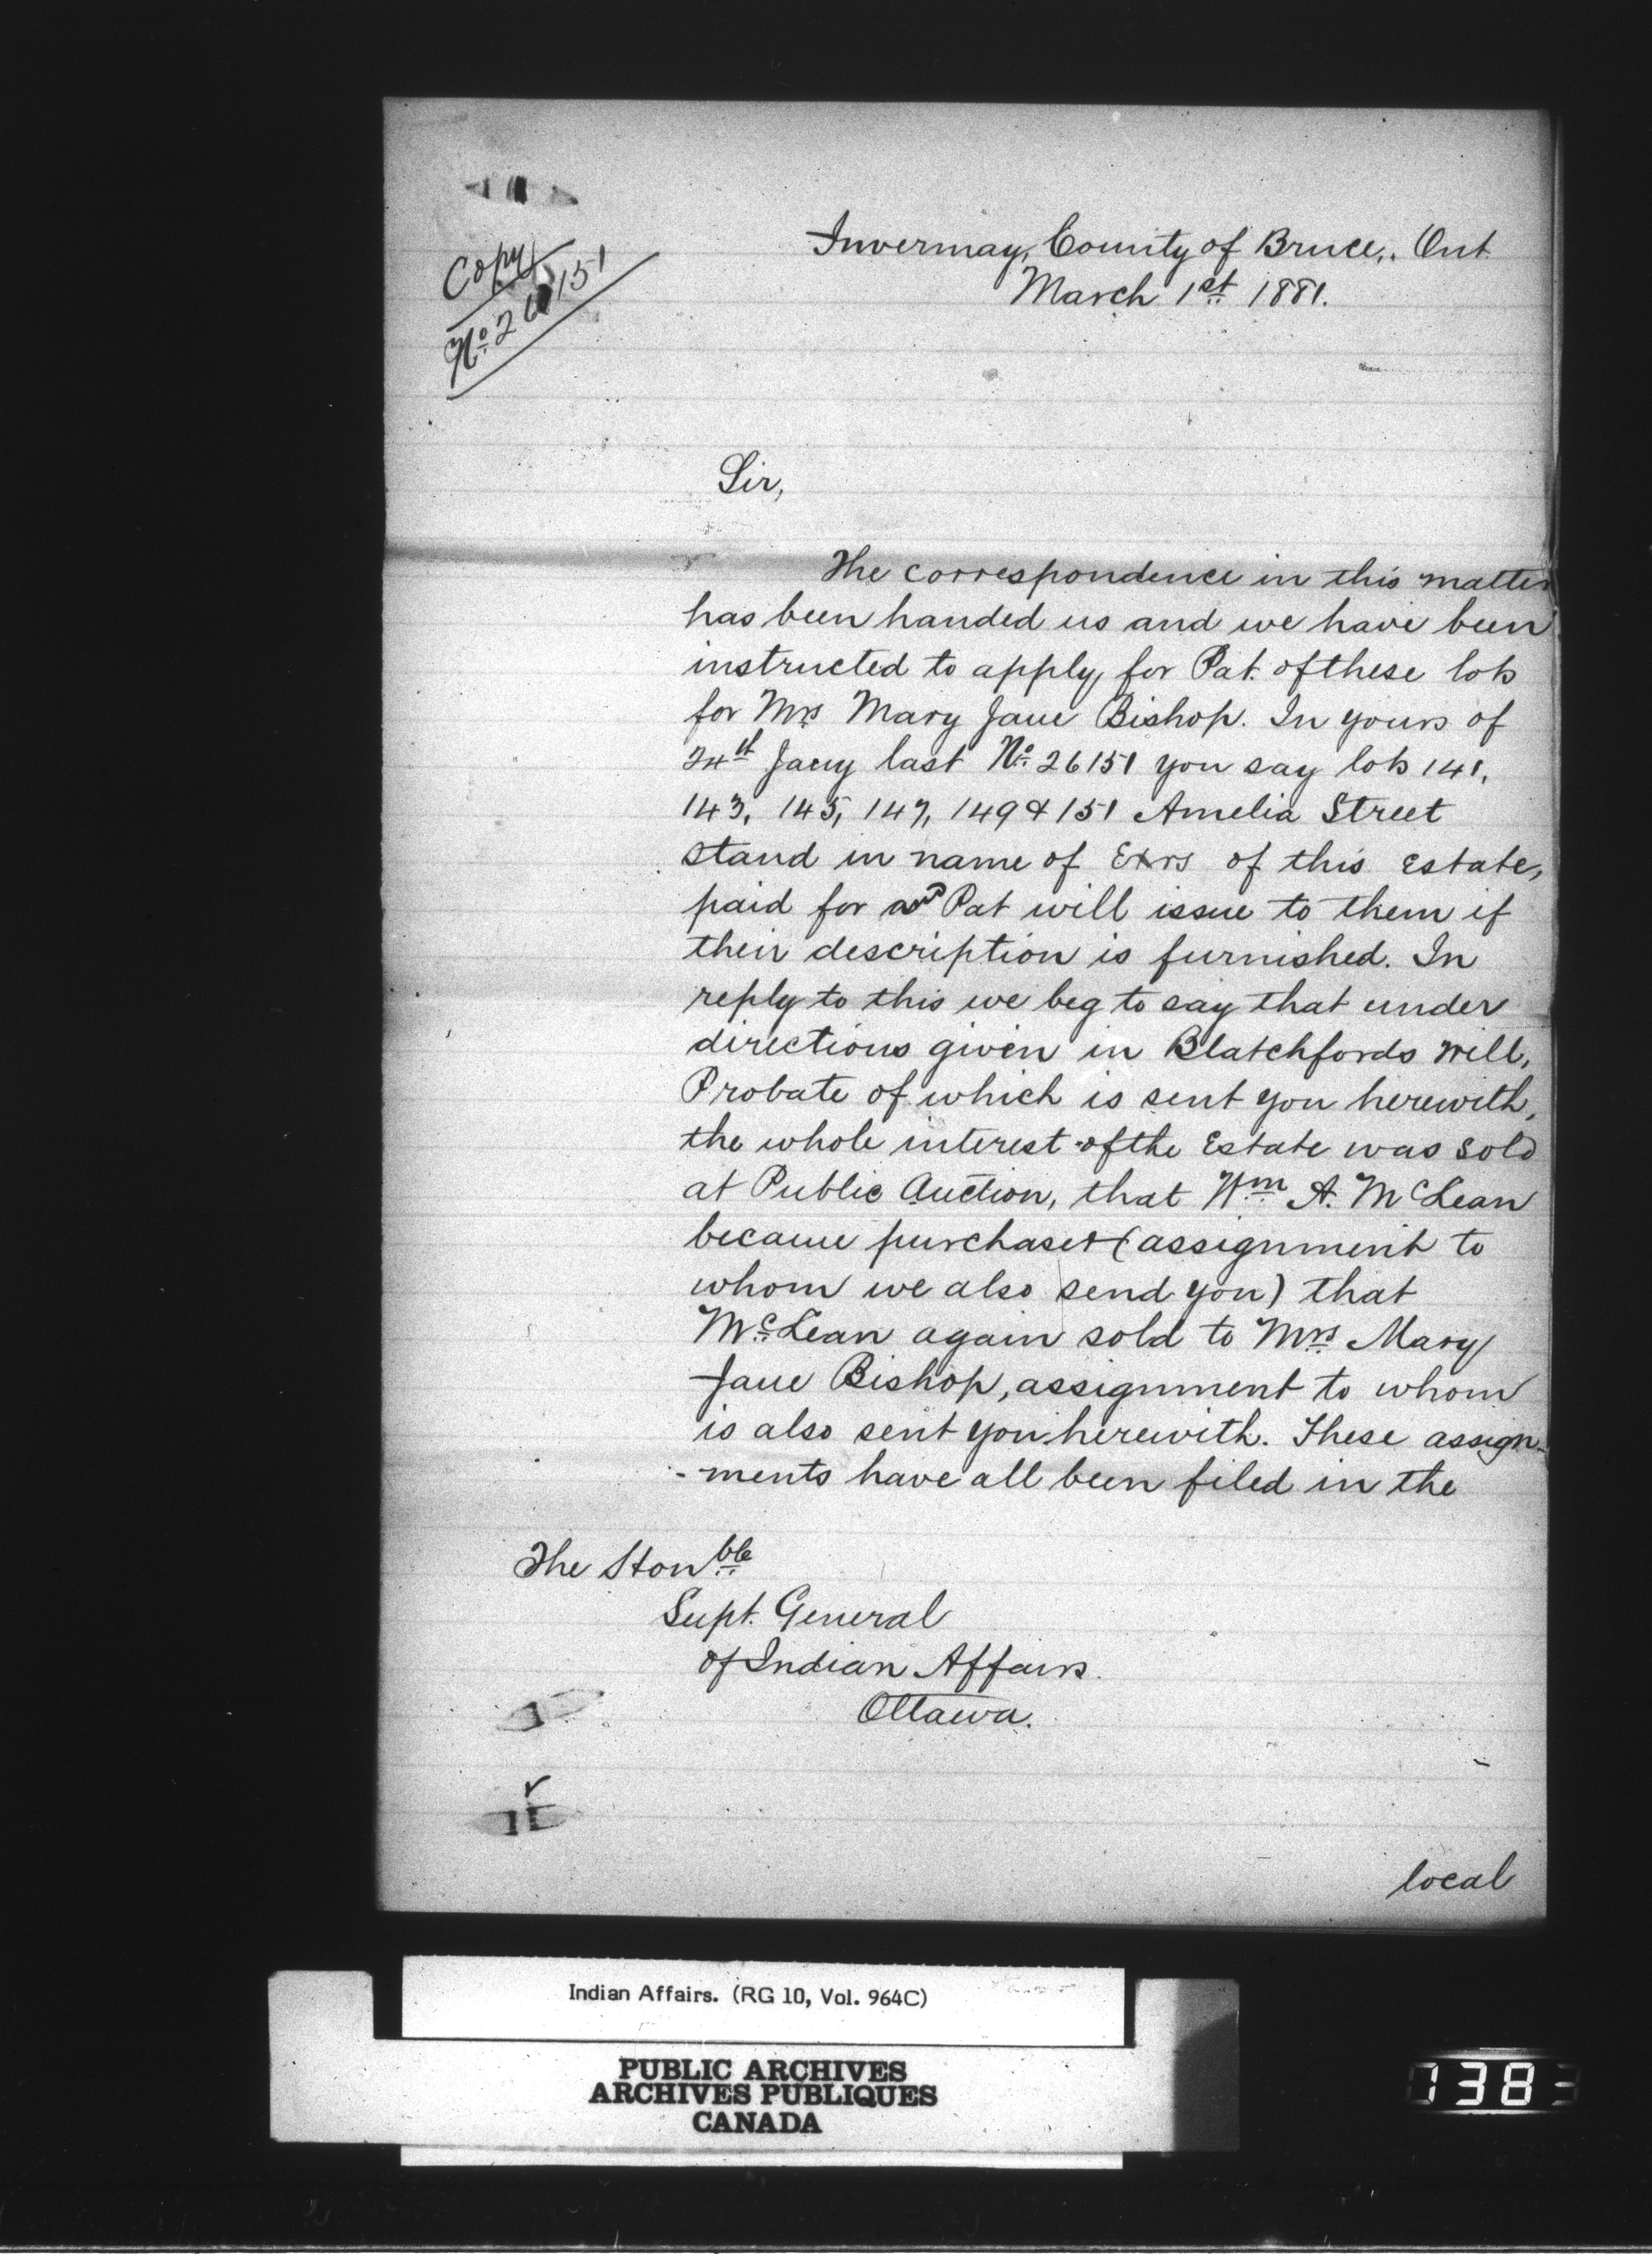 Copy
No. 26151
Invermay, County of Bruce,. Ont
March 1st 1881.
Sir,
The correspondence in this matter
has been handed us and we have been
instructed to apply for Pat. of these lots
for Mrs Mary Jane Bishop. In yours of
Jany last No. 26151 you say lots 141,
143, 145, 147, 149 & 151 Amelia Street
stand in name of Exrs of this Estate,
paid for and Pat will issue to them if
their description is furnished. In
reply to this we beg to say that under
directions given in Blatchfords Will,
Probate of which is sent you herewith,
the whole interest of the Estate was sold
at Public Auction, that Wm A. McLean
became purchaser (assignment to
whom we also send you) that
McLean again sold to Mrs Mary
Jane Bishop, assignment to whom
is also sent you herewith. These assign-
-ments have all been filed in the
The Honble
Supt. General
of Indian Affairs.
Ottawa.
local
Indian Affairs. (RG 10, Vol. 964C)
PUBLIC ARCHIVES
ARCHIVES PUBLIQUES
CANADA